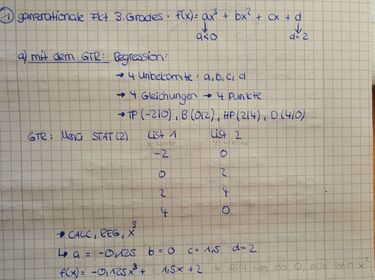 ① ganzrationale Fkt 3. Grades: f(x) = ax³ + bx² + cx + d
↓ ↓
a<0 d=2
a) mit dem GTR: Regression:
→ 4 Unbekannte: a, b, c, d
→ 4 Gleichungen → 4 Punkte
→ TP(-2|0), B(0|2), HP(2|4), D(4|0)
GTR: Menü STAT(2) List 1 List 2
-2 0
0 2
2 4
4 0
→ CALC, REG, x³
↳ a = -0,125 b = 0 c = 1,5 d = 2
f(x) = -0,125x³ + 1,5x + 2 b fällt weg da 0, also kein x²